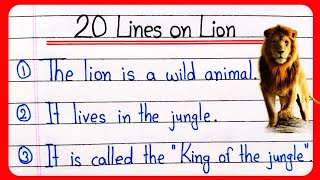 20 Lines on Lion
① The lion is a wild animal.
② It lives in the jungle.
③ It is called the "King of the jungle".